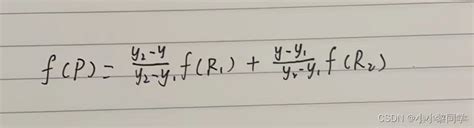 f(P) = \frac{y_2-y}{y_2-y_1} f(R_1) + \frac{y-y_1}{y_2-y_1} f(R_2)
CSDN @小小黎同学